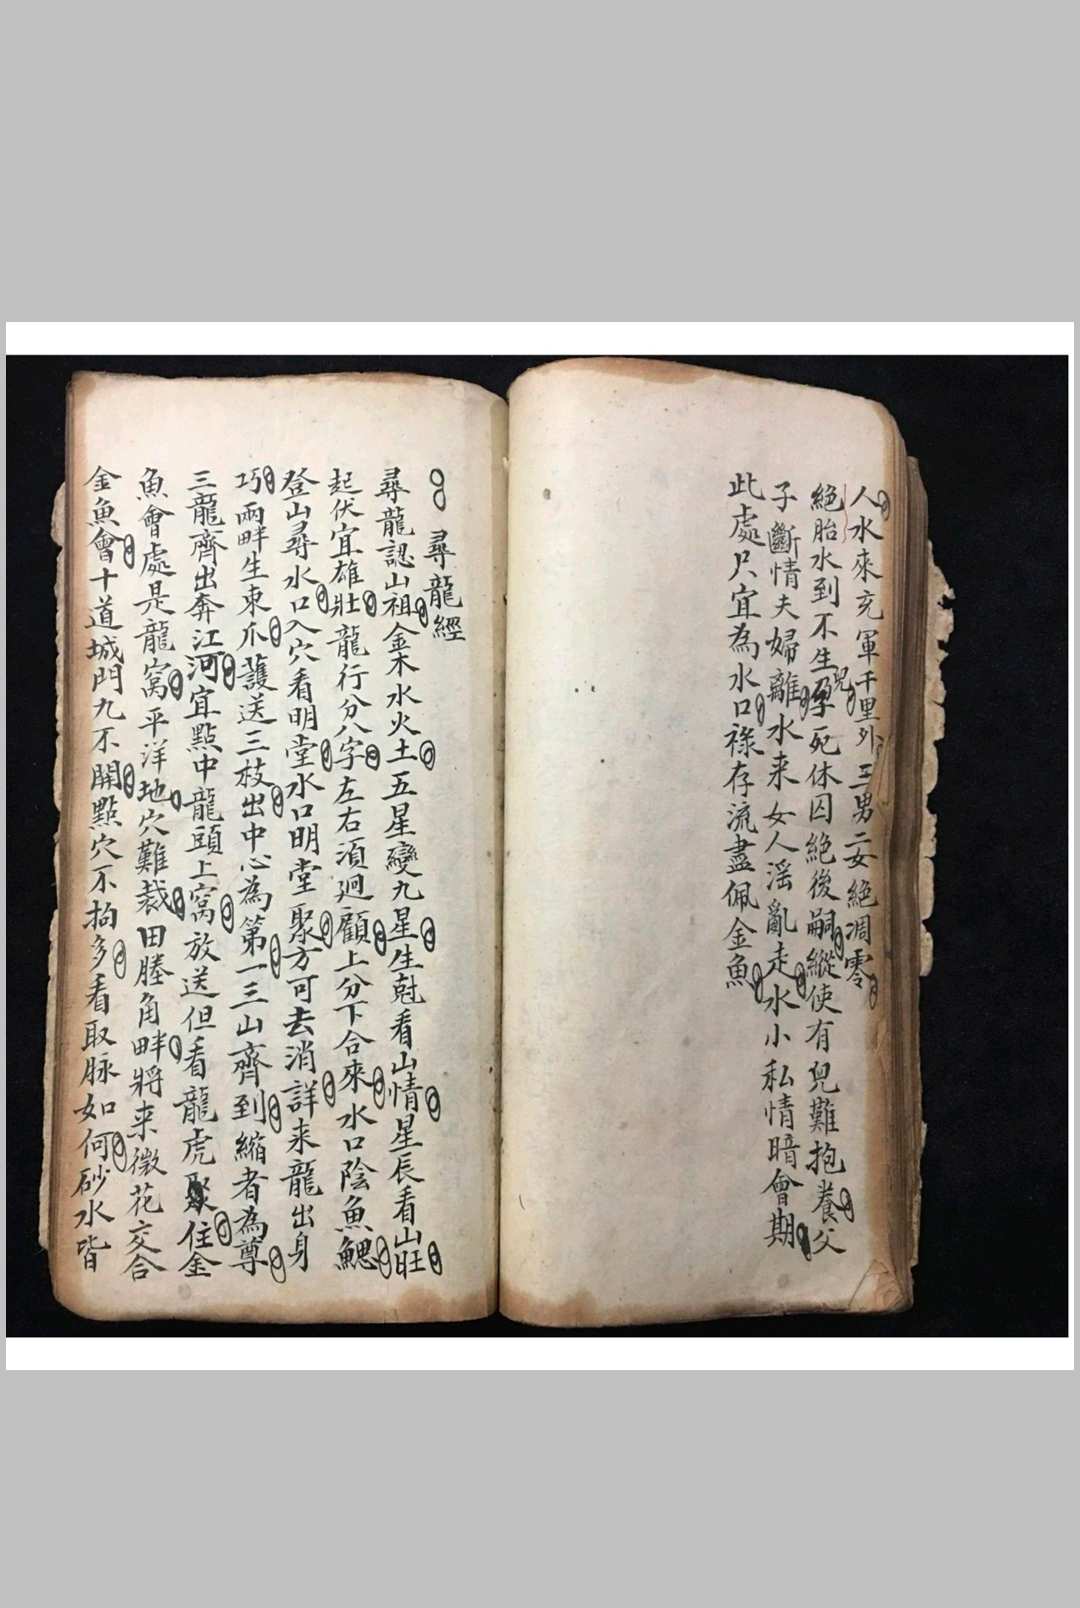 人水來充軍千里外三男二女絶凋零
絕胎水到不生兒孕死休囚絕後嗣縱使有兒難抱養父
子斷情夫婦離水来女人淫亂走水小私情暗會期
此處只宜為水口祿存流盡佩金魚
尋龍經
尋龍認山祖金木水火土五星變九星生尅看山情星辰看山旺
起伏宜雄壯龍行分八字左右須迴顧上分下合來水口陰魚鰓
登山尋水口入穴看明堂水口明堂聚方可去消詳来龍出身
巧兩畔生東爪護送三枝出中心為第一三山齊到縮者為尊
三龍齊出奔江河宜點中龍頭上窩放送但看龍虎聚住金
魚會處是龍窩平洋地穴難裁田塍角畔將来微花交合
金魚會十道城門九不開點穴不拘多看取脉如何砂水皆